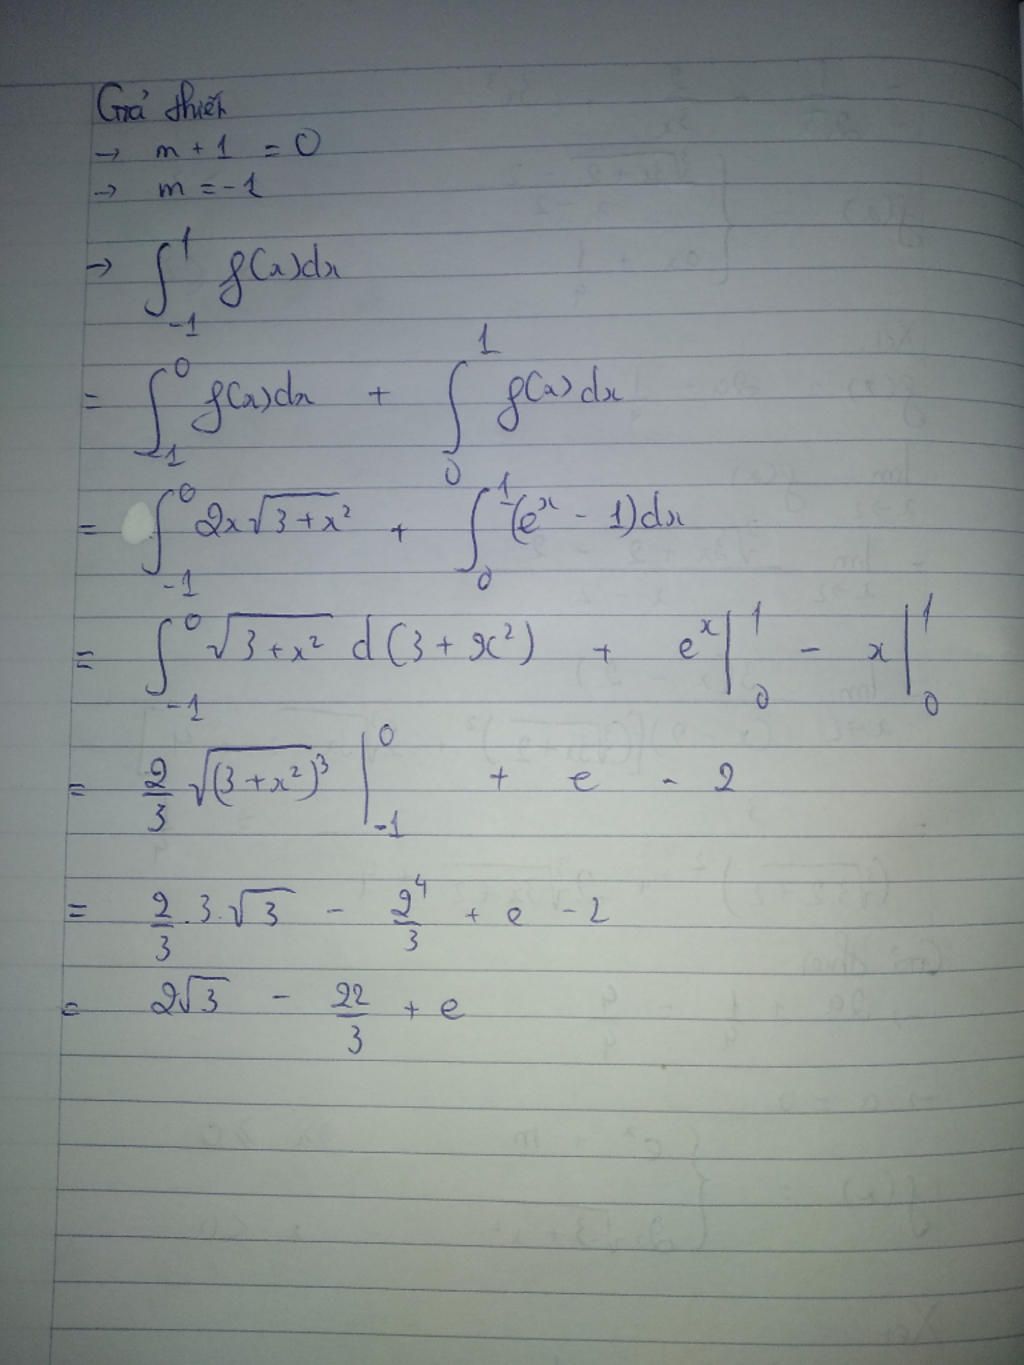 Giả thiết
→ m + 1 = 0
→ m = -1
→ ∫_{-1}^{1} f(x)dx
= ∫_{-1}^{0} f(x)dx + ∫_{0}^{1} f(x)dx
= ∫_{-1}^{0} 2x√(3+x²) + ∫_{0}^{1} (e^x - 1)dx
= ∫_{-1}^{0} √(3+x²) d(3+x²) + e^x |_{0}^{1} - x |_{0}^{1}
= 2/3 √((3+x²)³) |_{-1}^{0} + e - 2
= 2/3 . 3 . √3 - 2⁴/3 + e - 2
= 2√3 - 22/3 + e